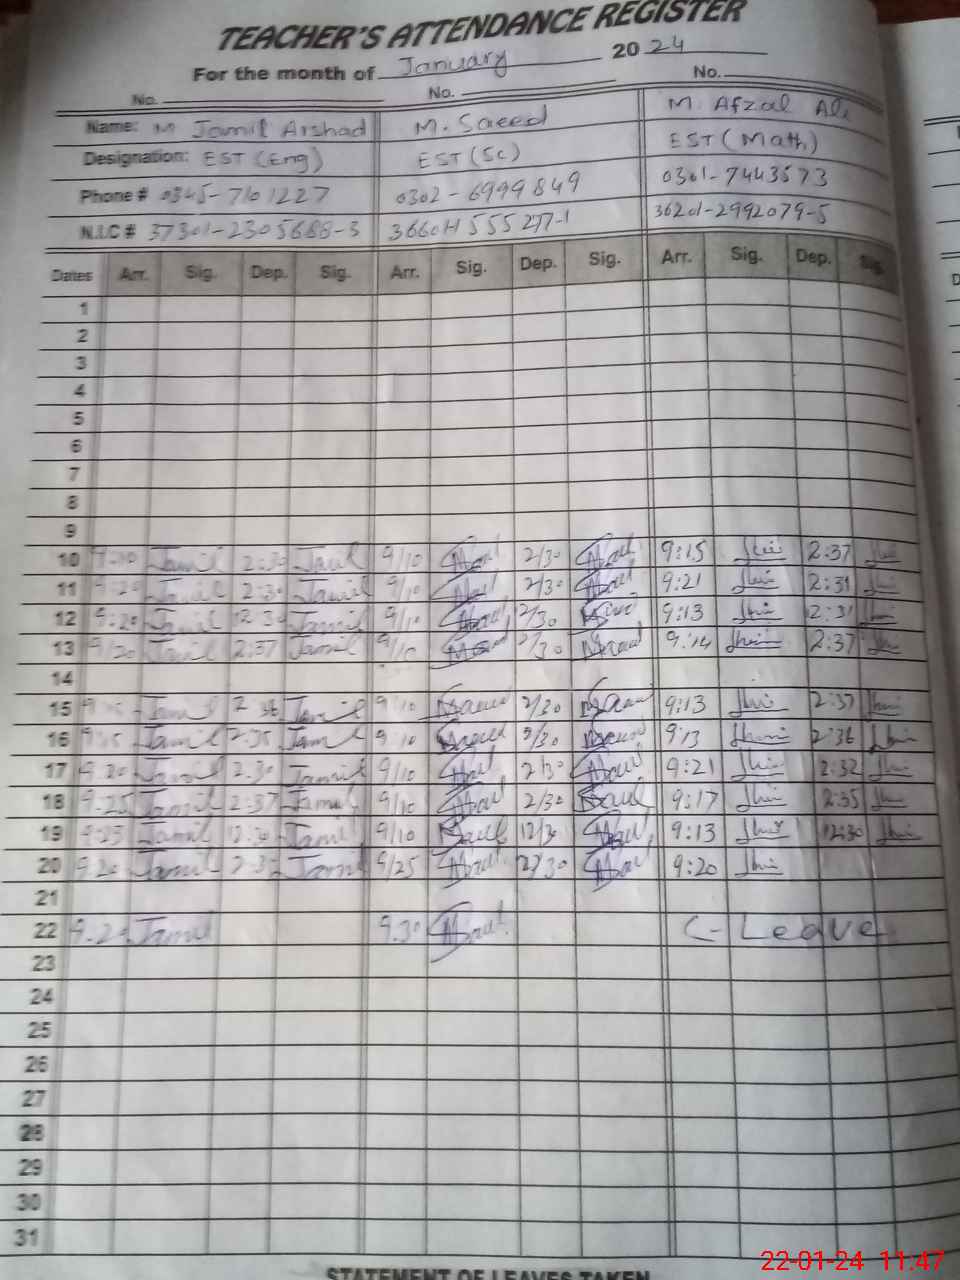 TEACHER'S ATTENDANCE REGISTER
For the month of January 20 24
No. No. No.
Name: M Jamil Arshad M. Saeed M. Afzal Ali
Designation: EST (Eng) EST (Sc) EST (Math)
Phone # 0345-7101227 0302-6999849 0301-7443573
N.I.C # 37301-2305688-3 36601-1555277-1 36201-2992079-5
Dates Arr. Sig. Dep. Sig. Arr. Sig. Dep. Sig. Arr. Sig. Dep. Sig.
1
2
3
4
5
6
7
8
9
10 Jamil 2:30 Jamil 9/10 2/30 9:15 2:37
11 9:20 Jamil 2:30 Jamil 9/10 2/30 9:21 2:31
12 9:20 Jamil 12:30 Jamil 9/10 2/30 9:13 2:31
13 9/20 Jamil 2:37 Jamil 9/10 2/30 9:14 2:37
14
15 Jamil 2 36 Jamil 9 10 2/30 9:13 2:37
16 9:15 Jamil 2:35 Jamil 9 10 2/30 9:13 2:36
17 9.20 Jamil 2.30 Jamil 9/10 2/30 9:21 2:32
18 9:25 Jamil 2:37 Jamil 9/10 2/30 9:17 2:35
19 9:25 Jamil 12:30 Jamil 9/10 12/30 9:13 12:30
20 9.20 Jamil Jamil 9/25 2/30 9:20
21
22 9.20 Jamil 9.30 C-Leave
23
24
25
26
27
28
29
30
31
STATEMENT OF LEAVES TAKEN
22-01-24 11:47